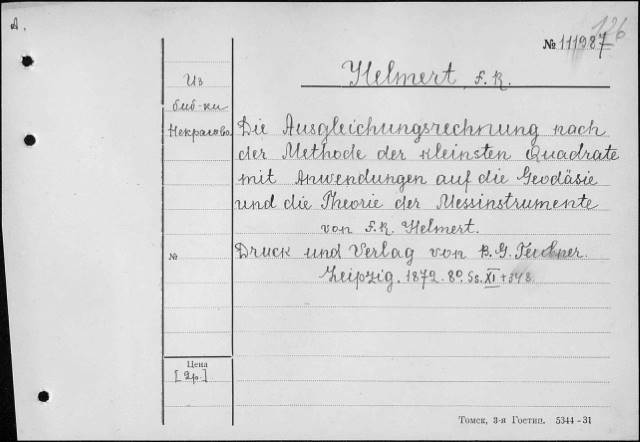 А.
126
№ 111987
Helmert, F. R.
Из
биб-ки
Некрасова
Die Ausgleichungsrechnung nach
der Methode der kleinsten Quadrate
mit Anwendungen auf die Geodäsie
und die Theorie der Messinstrumente
von F. R. Helmert.
№
Druck und Verlag von B. G. Teubner.
Leipzig. 1872. 8º. Ss. XI + 348.
Цена
[2р.]
Томск, 3-я Гостип. 5344-31